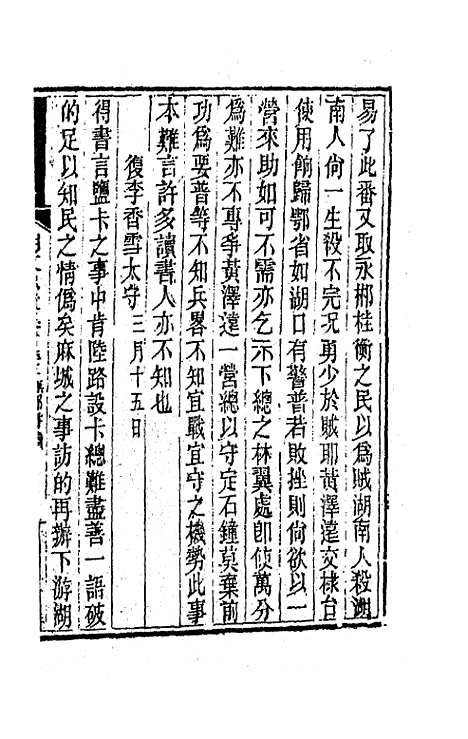 易了此番又取永郴桂衡之民以爲賊湖南人殺湖
南人尙一生殺不完况勇少於賊耶黃澤遠交棣台
使用餉歸鄂省如湖口有警普若敗挫則尙欲以一
營來助如可不需亦乞示下總之林翼處卽使萬分
爲難亦不專爭黃澤遠一營總以守定石鐘莫棄前
功爲要普等不知兵畧不知宜戰宜守之機勢此事
本難言許多讀書人亦不知也
復李香雪太守三月十五日
得書言鹽卡之事中肯陸路設卡總難盡善一語破
的足以知民之情僞矣麻城之事訪的再辦下游湖